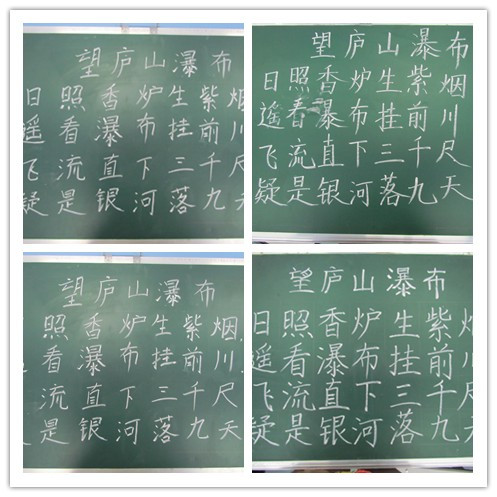 望庐山瀑布
日照香炉生紫烟
遥看瀑布挂前川
飞流直下三千尺
疑是银河落九天
望庐山瀑布
日照香炉生紫烟
遥看瀑布挂前川
飞流直下三千尺
疑是银河落九天
望庐山瀑布
照香炉生紫烟
看瀑布挂前川
流直下三千尺
是银河落九天
望庐山瀑布
日照香炉生紫烟
遥看瀑布挂前川
飞流直下三千尺
疑是银河落九天